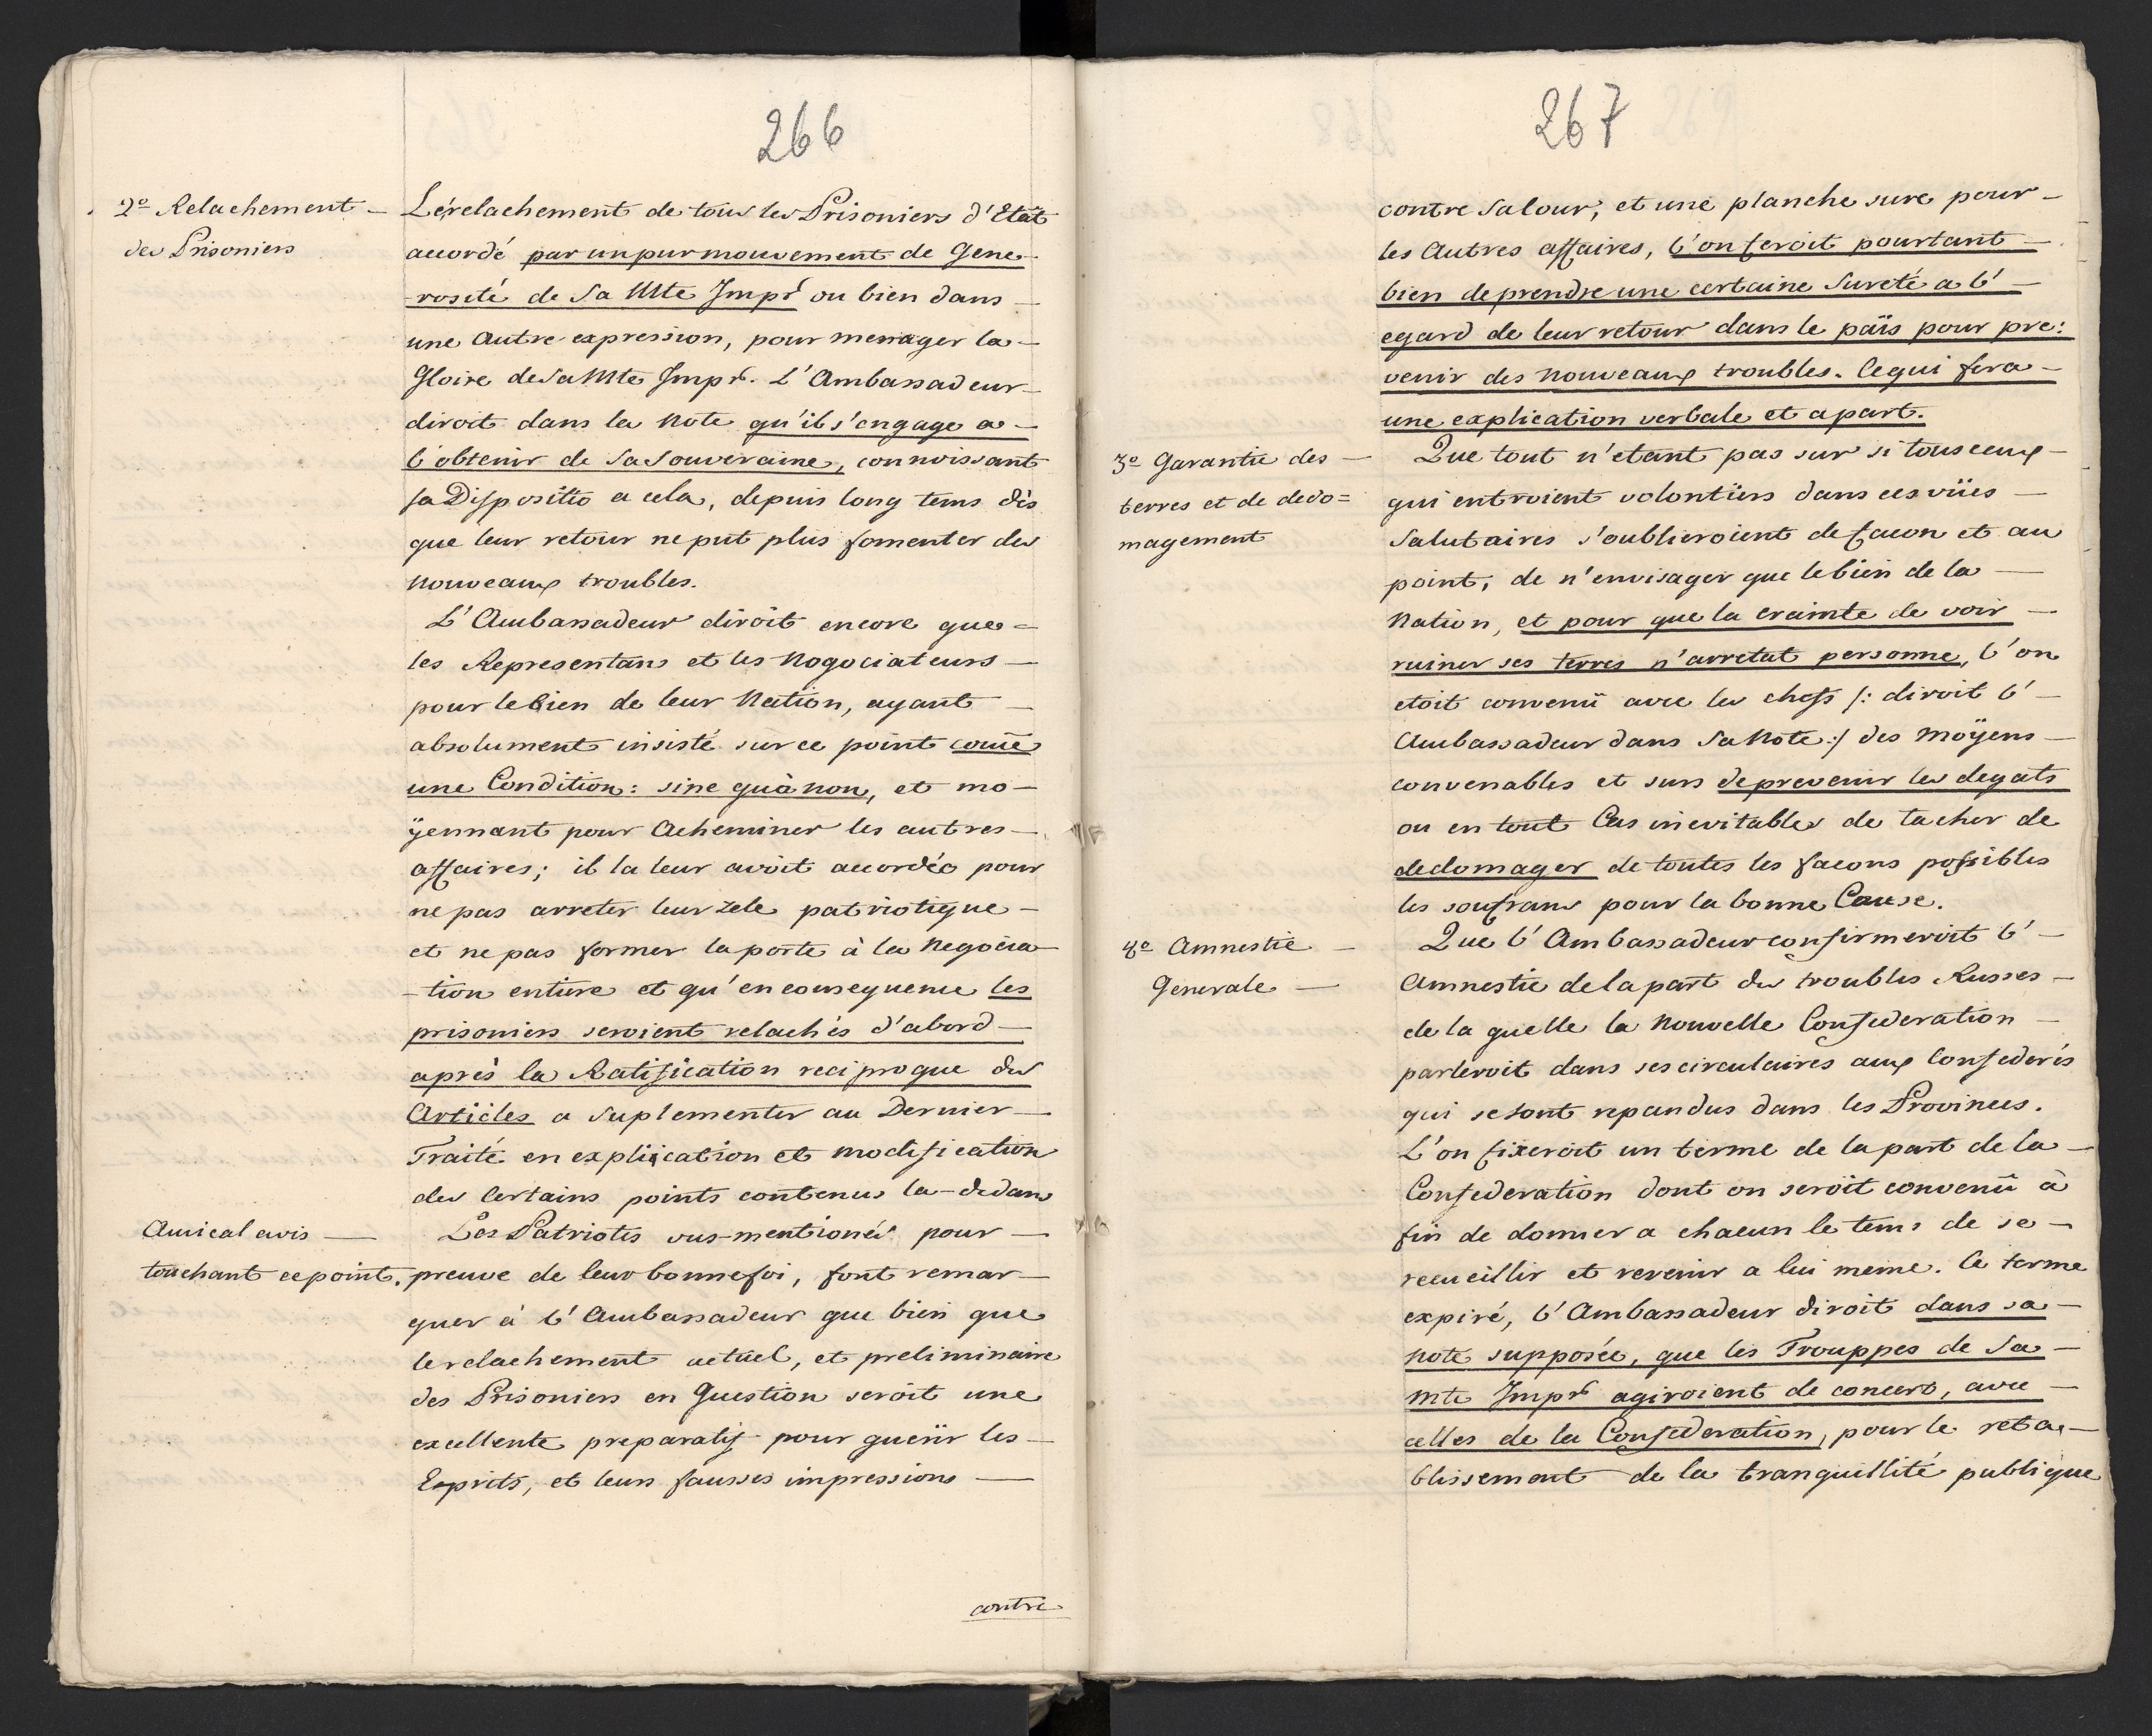 266
2º Relachement —
des Prisoniers
Le relachement de tous les Prisoniers d'Etat
accordé par un pur mouvement de Gene-
-rosité de Sa Mte Impr ou bien dans —
une Autre expression, pour menager la —
Gloire de Sa Mte Impr. L'Ambassadeur —
diroit dans la Note qu'il s'engage a —
l'obtenir de Sa Souveraine, connoissant
sa Dispositio a cela, depuis long tems dès
que leur retour ne put plus fomenter des
Nouveaux troubles.
L'Ambassadeur diroit encore que =
les Representans et les Nogociateurs —
pour le bien de leur Nation, ayant —
absolument insisté sur ce point come
une Condition: sine quà non, et mo —
ÿennant pour Acheminer les autres —
affaires; il la leur avoit accordée pour
ne pas arreter leur zele patriotique —
et ne pas fermer la porte à la Negocia
-tion entiere et qu'en consequence les
prisoniers seroient relachés d'abord —
après la Ratification reciproque des
Articles a Suplementer au Dernier —
Traité en explication et modification
des Certains points contenus la-dedans
Amical avis —
touchant ce point.
Les Patriotes sus-mentionés pour —
preuve de leur bonne foi, font remar —
quer à l'Ambassadeur que bien que
le relachement actuel, et preliminaire
des Prisoniers en Question seroit une
excellente preparatif pour guerir les —
Esprits, et leurs fausses impressions —
contre
267
contre Sa Cour, et une planche sure pour —
les Autres affaires, l'on feroit pourtant —
bien de prendre une certaine Sureté a l' —
egard de leur retour dans le païs pour pre:
venir des nouveaux troubles. Ce qui fera —
une explication verbale et apart.
3º Garantie des —
terres et de dedo =
magement
Que tout n'etant pas sur si tous ceux —
qui entroient volontiers dans ces vües —
Salutaires s'oublieroient de facon et au
point, de n'envisager que le bien de la —
Nation, et pour que la crainte de voir —
ruiner ses terres n'arretat personne, l'on
etoit convenü avec les chefs /: diroit l' —
Ambassadeur dans Sa Note :/ des Moÿens —
convenables et surs de prevenir les degats
ou en tout Cas inevitables de tacher de
dedomager de toutes les facons possibles
les soufrans pour la bonne Cause.
4º Amnestie —
Generale —
Que l'Ambassadeur confirmeroit l' —
Amnestie de la part des troubles Russes —
de la quelle la Nouvelle Confederation —
parleroit dans ses circulaires aux Confederés
qui se sont repandus dans les Provinces.
L'on fixeroit un terme de la part de la —
Confederation dont on seroit convenü à
fin de donner a chacun le tems de se —
recueillir et revenir a lui meme. Ce terme
expiré, l'Ambassadeur diroit dans sa —
note supposée, que les Trouppes de Sa —
Mte Impr agiroient de concert, avec —
celles de la Confederation, pour le reta —
blissement de la tranquillité publique